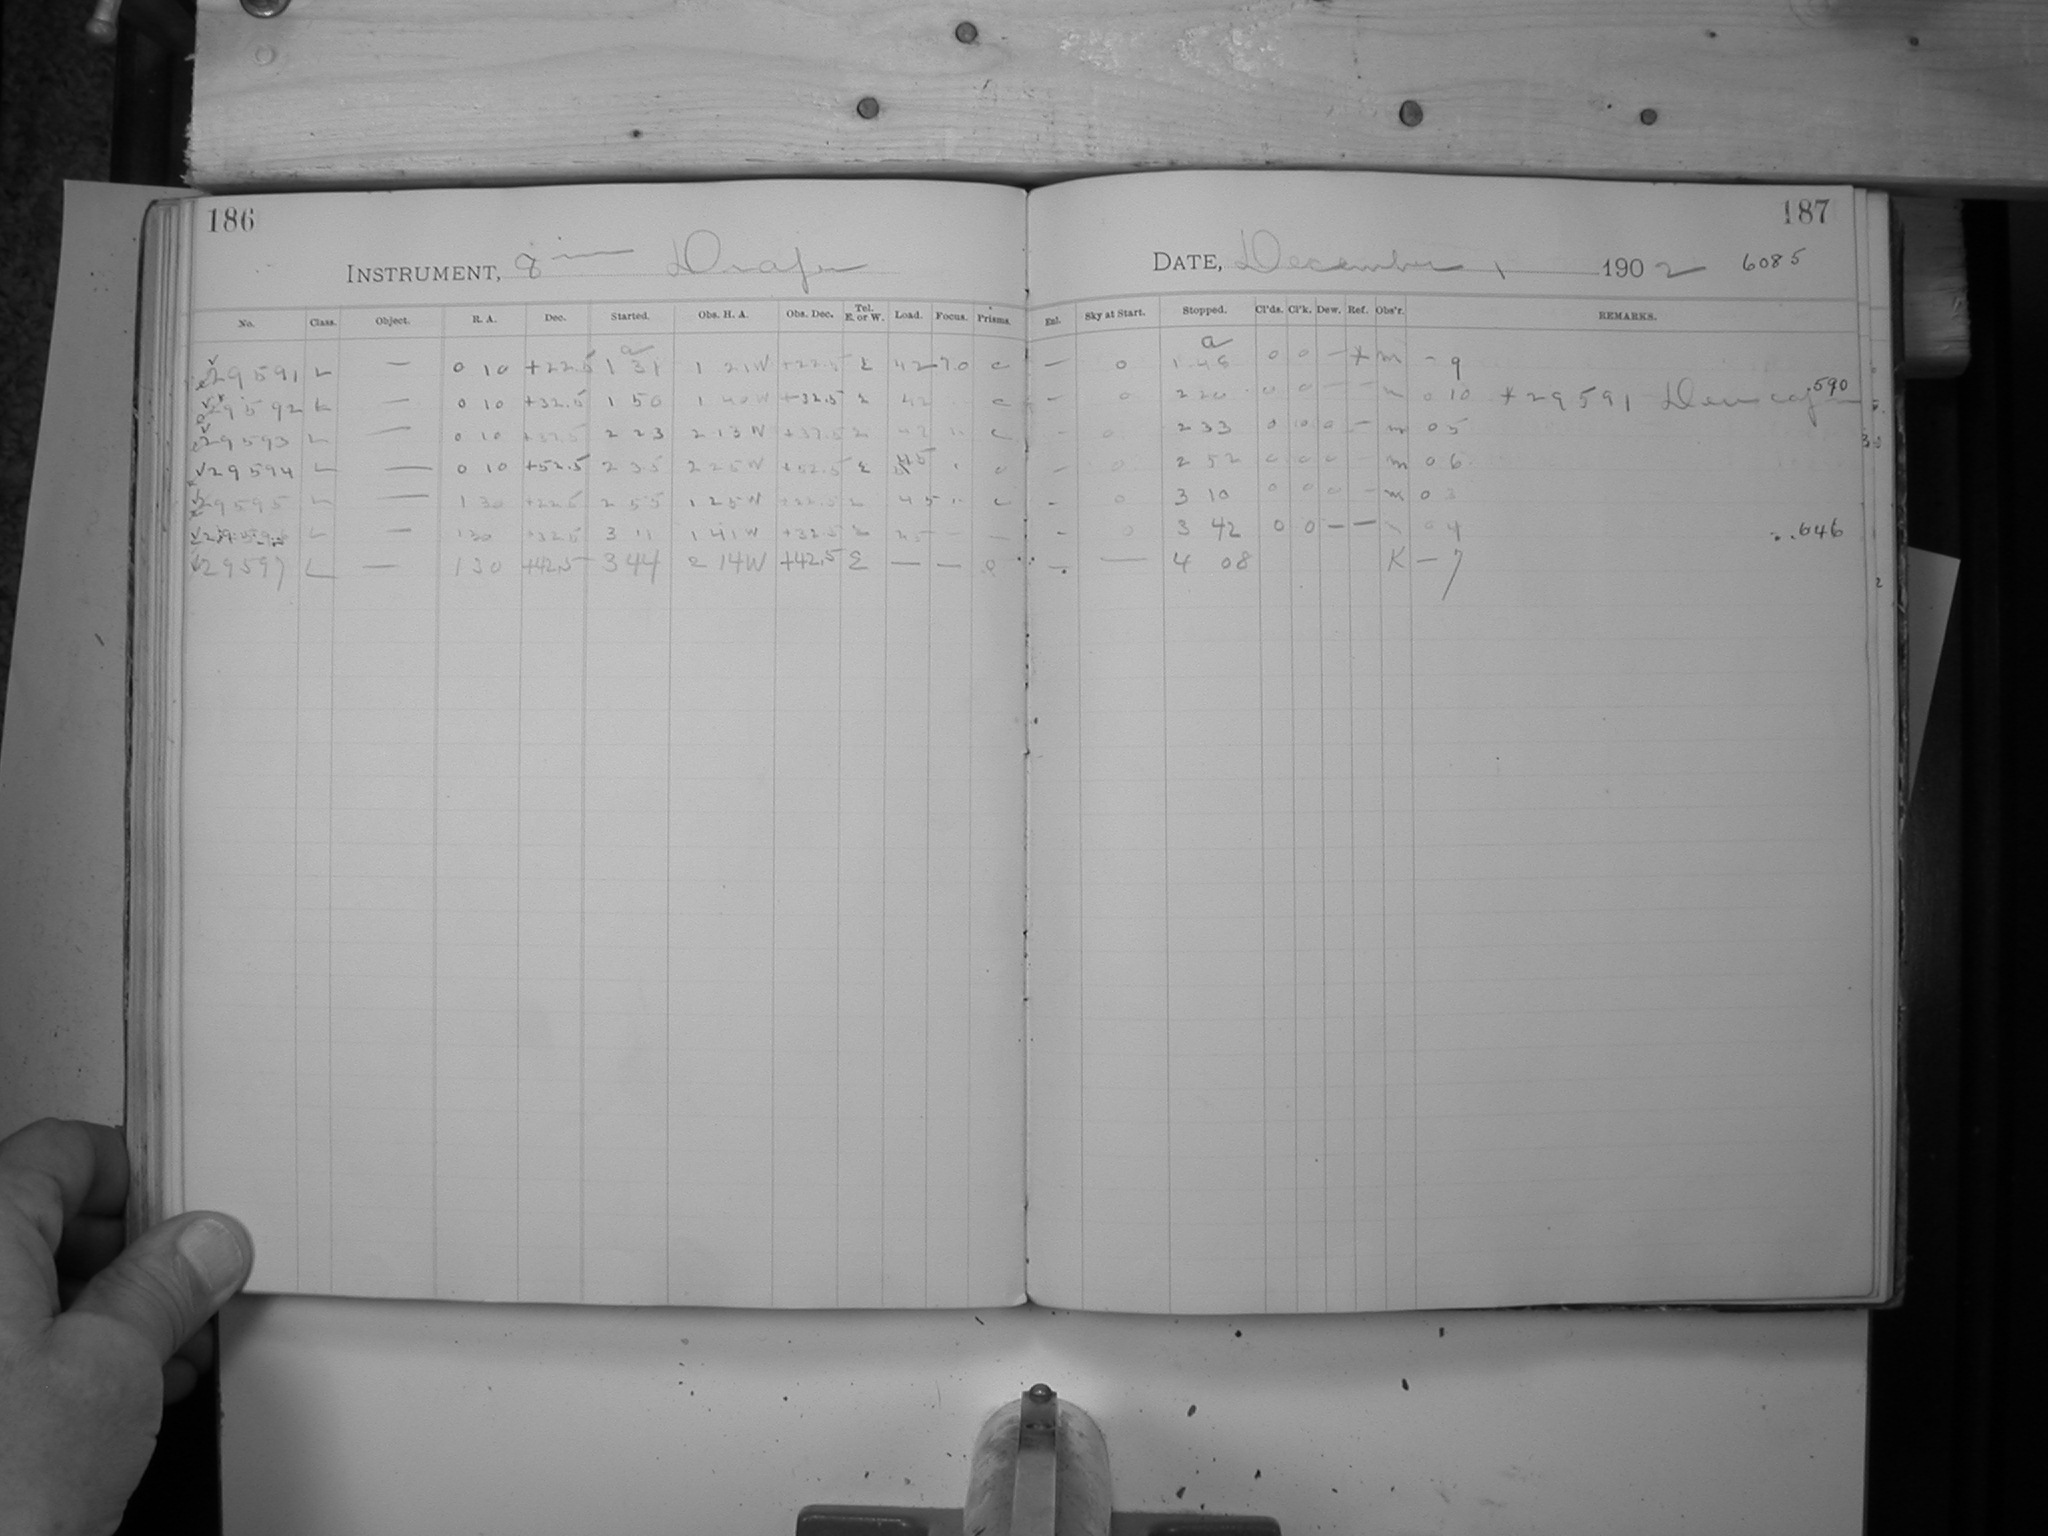 186
INSTRUMENT, 8 in Draper
No. Class. Object. R. A. Dec. Started. Obs. H. A. Obs. Dec. Tel. E. or W. Load. Focus. Prisms.
a
29591 L — 0 10 +22.5 1 31 1 21W +22.5 E 42 70 c
29592 L — 0 10 +32.5 1 50 1 40W +32.5 E 42 c
29593 L — 0 10 +37.5 2 23 2 13W +37.5 E 42 " c
29594 L — 0 10 +52.5 2 35 2 25W +52.5 E 45 " c
29595 L — 1 30 +22.5 2 55 1 25W +22.5 E 45 " c
29596 L — 1 30 +32.5 3 11 1 41W +32.5 E 45 — —
29597 L — 1 30 +42.5 3 44 2 14W +42.5 E — — c
187
DATE, December 1 1902 6085
Enl. Sky at Start. Stopped. Cl'ds. Cl'k. Dew. Ref. Obs'r. REMARKS.
a
— 0 1 46 0 0 — * m — 9
— 0 2 20 0 0 — — m 0 10 * 29591 590
— 0 2 33 0 0 0 — m 0 5
— 0 2 52 0 0 0 m 0 6
— 0 3 10 0 0 0 — m 0 3
— 0 3 42 0 0 — — 0 4 646
— — 4 08 K — 7